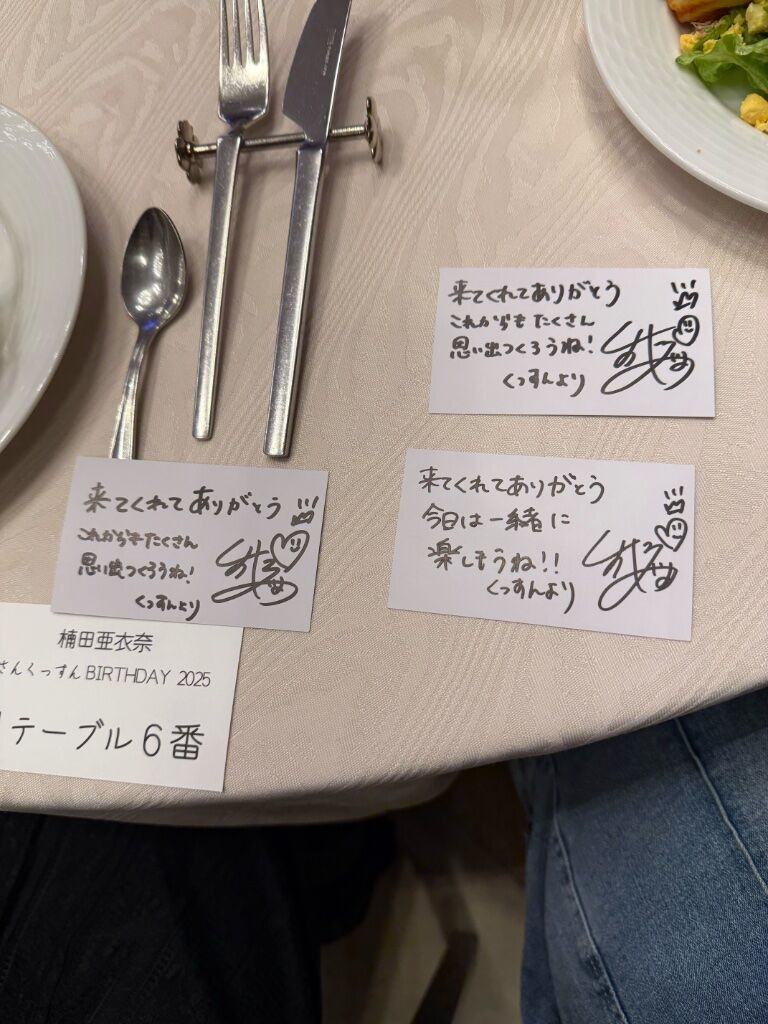 来てくれてありがとう
これからもたくさん
思い出つくろうね!
くっすんより
来てくれてありがとう
今日は一緒に
楽しもうね!!
くっすんより
来てくれてありがとう
これからもたくさん
思い出つくろうね!
くっすんより
楠田亜衣奈
さんくっすんBIRTHDAY 2025
テーブル6番